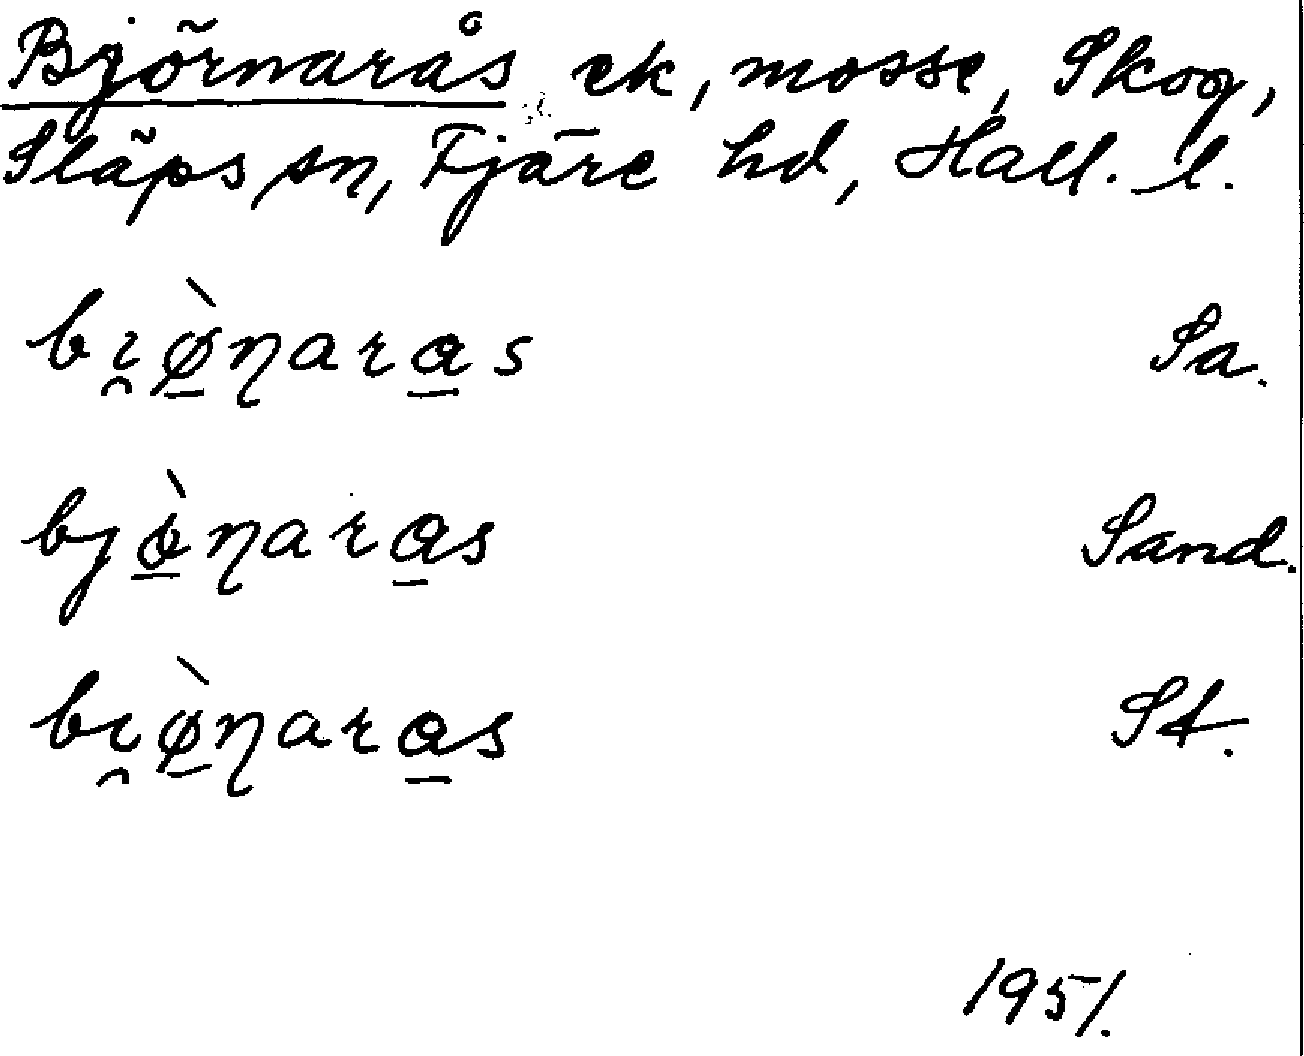 Björnarås ek, mosse, Skog,
Släps sn, Fjäre hd, Hall. l.
bı̯ø̠̀ɳara̠s Sa.
bjö̠̀ɳara̠s Sand.
bı̯ø̠̀ɳara̠s St.
1951.